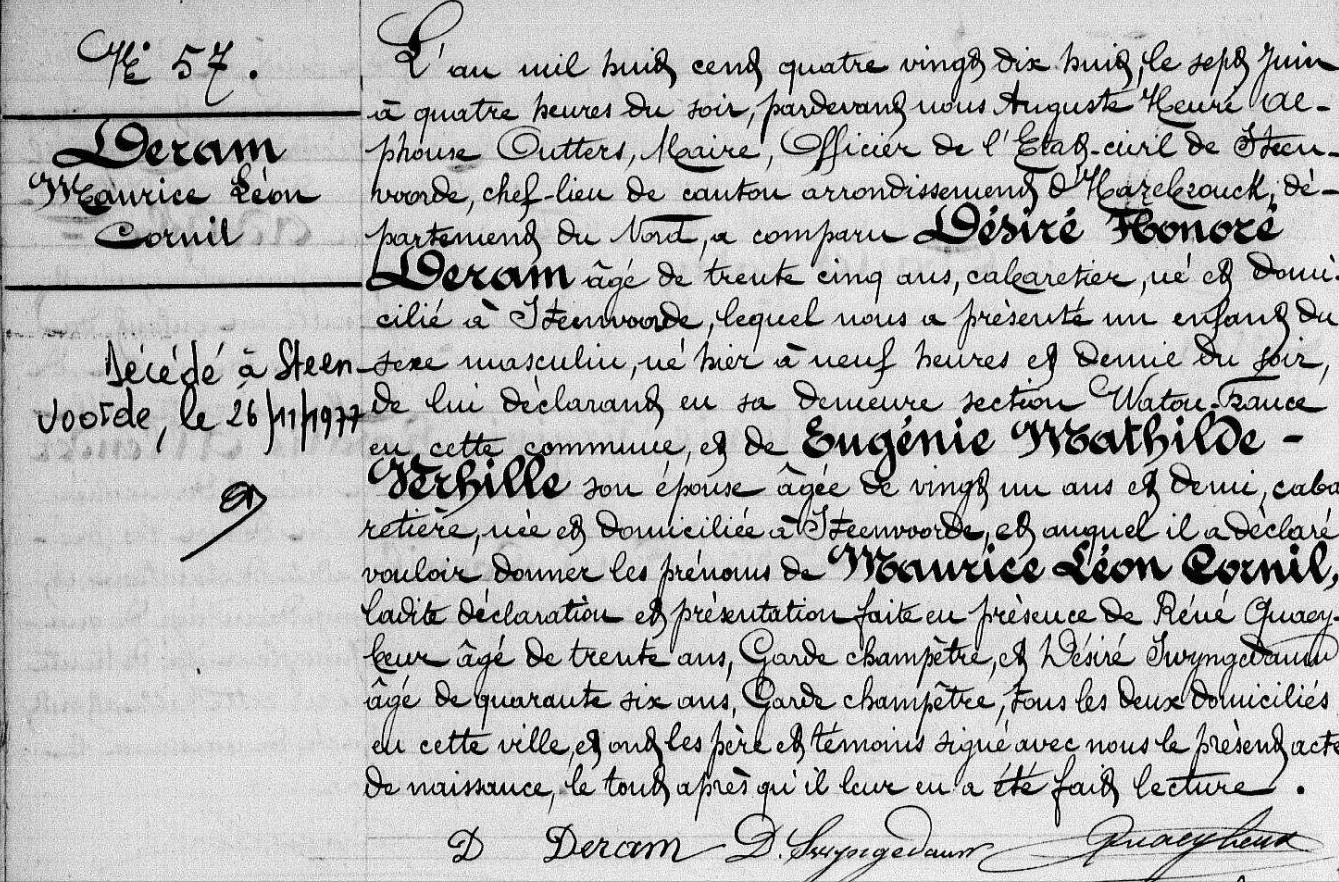 N° 57.
Deram
Maurice Léon
Cornil
Décédé à Steen-
voorde, le 26/11/1977
L'an mil huit cent quatre vingt dix huit, le sept Juin
à quatre heures du soir, pardevant nous Auguste Henri Al-
phonse Outters, Maire, Officier de l'Etat-civil de Steen-
voorde, chef-lieu de canton arrondissement d'Hazebrouck, dé-
partement du Nord, a comparu Désiré Honoré
Deram âgé de trente cinq ans, cabaretier, né et domi-
cilié à Steenvoorde, lequel nous a présenté un enfant du
sexe masculin, né hier à neuf heures et demie du soir,
de lui déclarant en sa demeure section Watou-France
en cette commune, et de Eugénie Mathilde -
Verhille son épouse âgée de vingt un ans et demi, caba
retière, née et domiciliée à Steenvoorde, et auquel il a déclaré
vouloir donner les prénoms de Maurice Léon Cornil,
ladite déclaration et présentation faite en présence de Réné Quaey-
beur âgé de trente ans, Garde champêtre, et Désiré Swyngedauw
âgé de quarante six ans, Garde champêtre, tous les deux domiciliés
en cette ville, et ont les père et témoins signé avec nous le présent acte
de naissance, le tout après qu'il leur en a été fait lecture.
D Deram D. Swyngedauw Quaeybeur